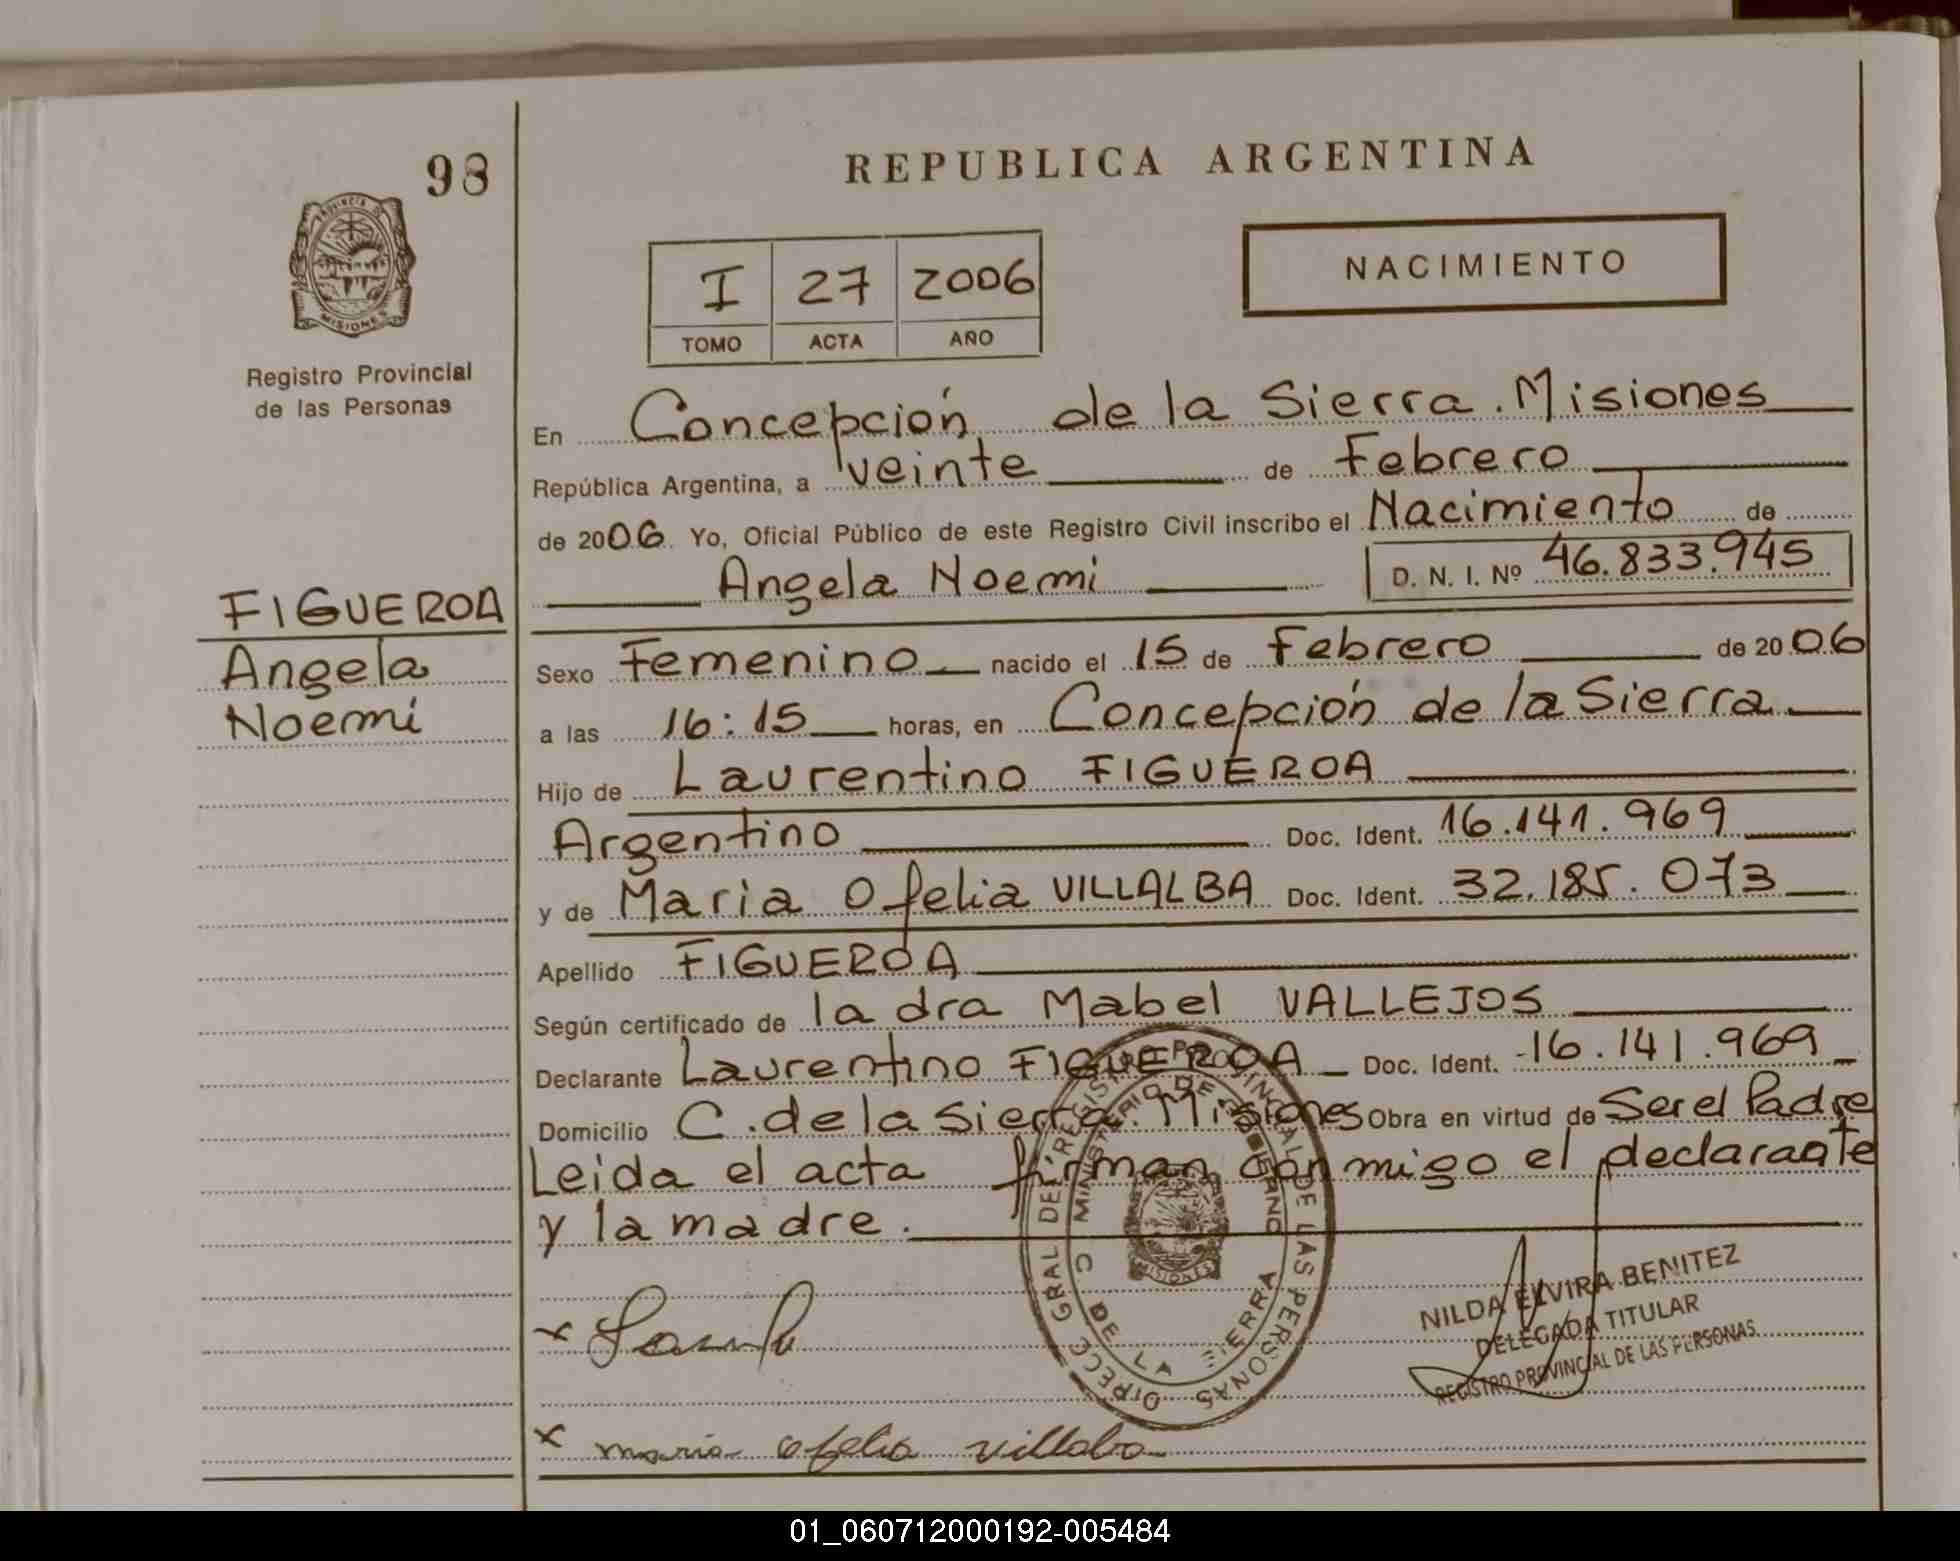 98
PROVINCIA DE
MISIONES
Registro Provincial
de las Personas
FIGUEROA
Angela
Noemí
REPUBLICA ARGENTINA
I 27 2006
TOMO ACTA AÑO
NACIMIENTO
En Concepción de la Sierra. Misiones
República Argentina, a veinte de Febrero
de 2006. Yo, Oficial Público de este Registro Civil inscribo el Nacimiento de
Angela Noemi D. N. I. Nº 46.833.945
Sexo Femenino nacido el 15 de Febrero de 2006
a las 16:15 horas, en Concepción de la Sierra
Hijo de Laurentino FIGUEROA
Argentino Doc. Ident. 16.141.969
y de Maria Ofelia VILLALBA Doc. Ident. 32.185.073
Apellido FIGUEROA
Según certificado de la dra Mabel VALLEJOS
Declarante Laurentino FIGUEROA Doc. Ident. 16.141.969
Domicilio C. de la Sierra. Misiones Obra en virtud de Ser el Padre
Leida el acta firman conmigo el declarante
y la madre.
DIRECC GRAL DE REGISTRO PROVINCIAL DE LAS PERSONAS
MINISTERIO DE GOBIERNO
C. DE LA SIERRA
MISIONES
NILDA ELVIRA BENITEZ
DELEGADA TITULAR
REGISTRO PROVINCIAL DE LAS PERSONAS
x
x maria ofelia villalba
01_060712000192-005484